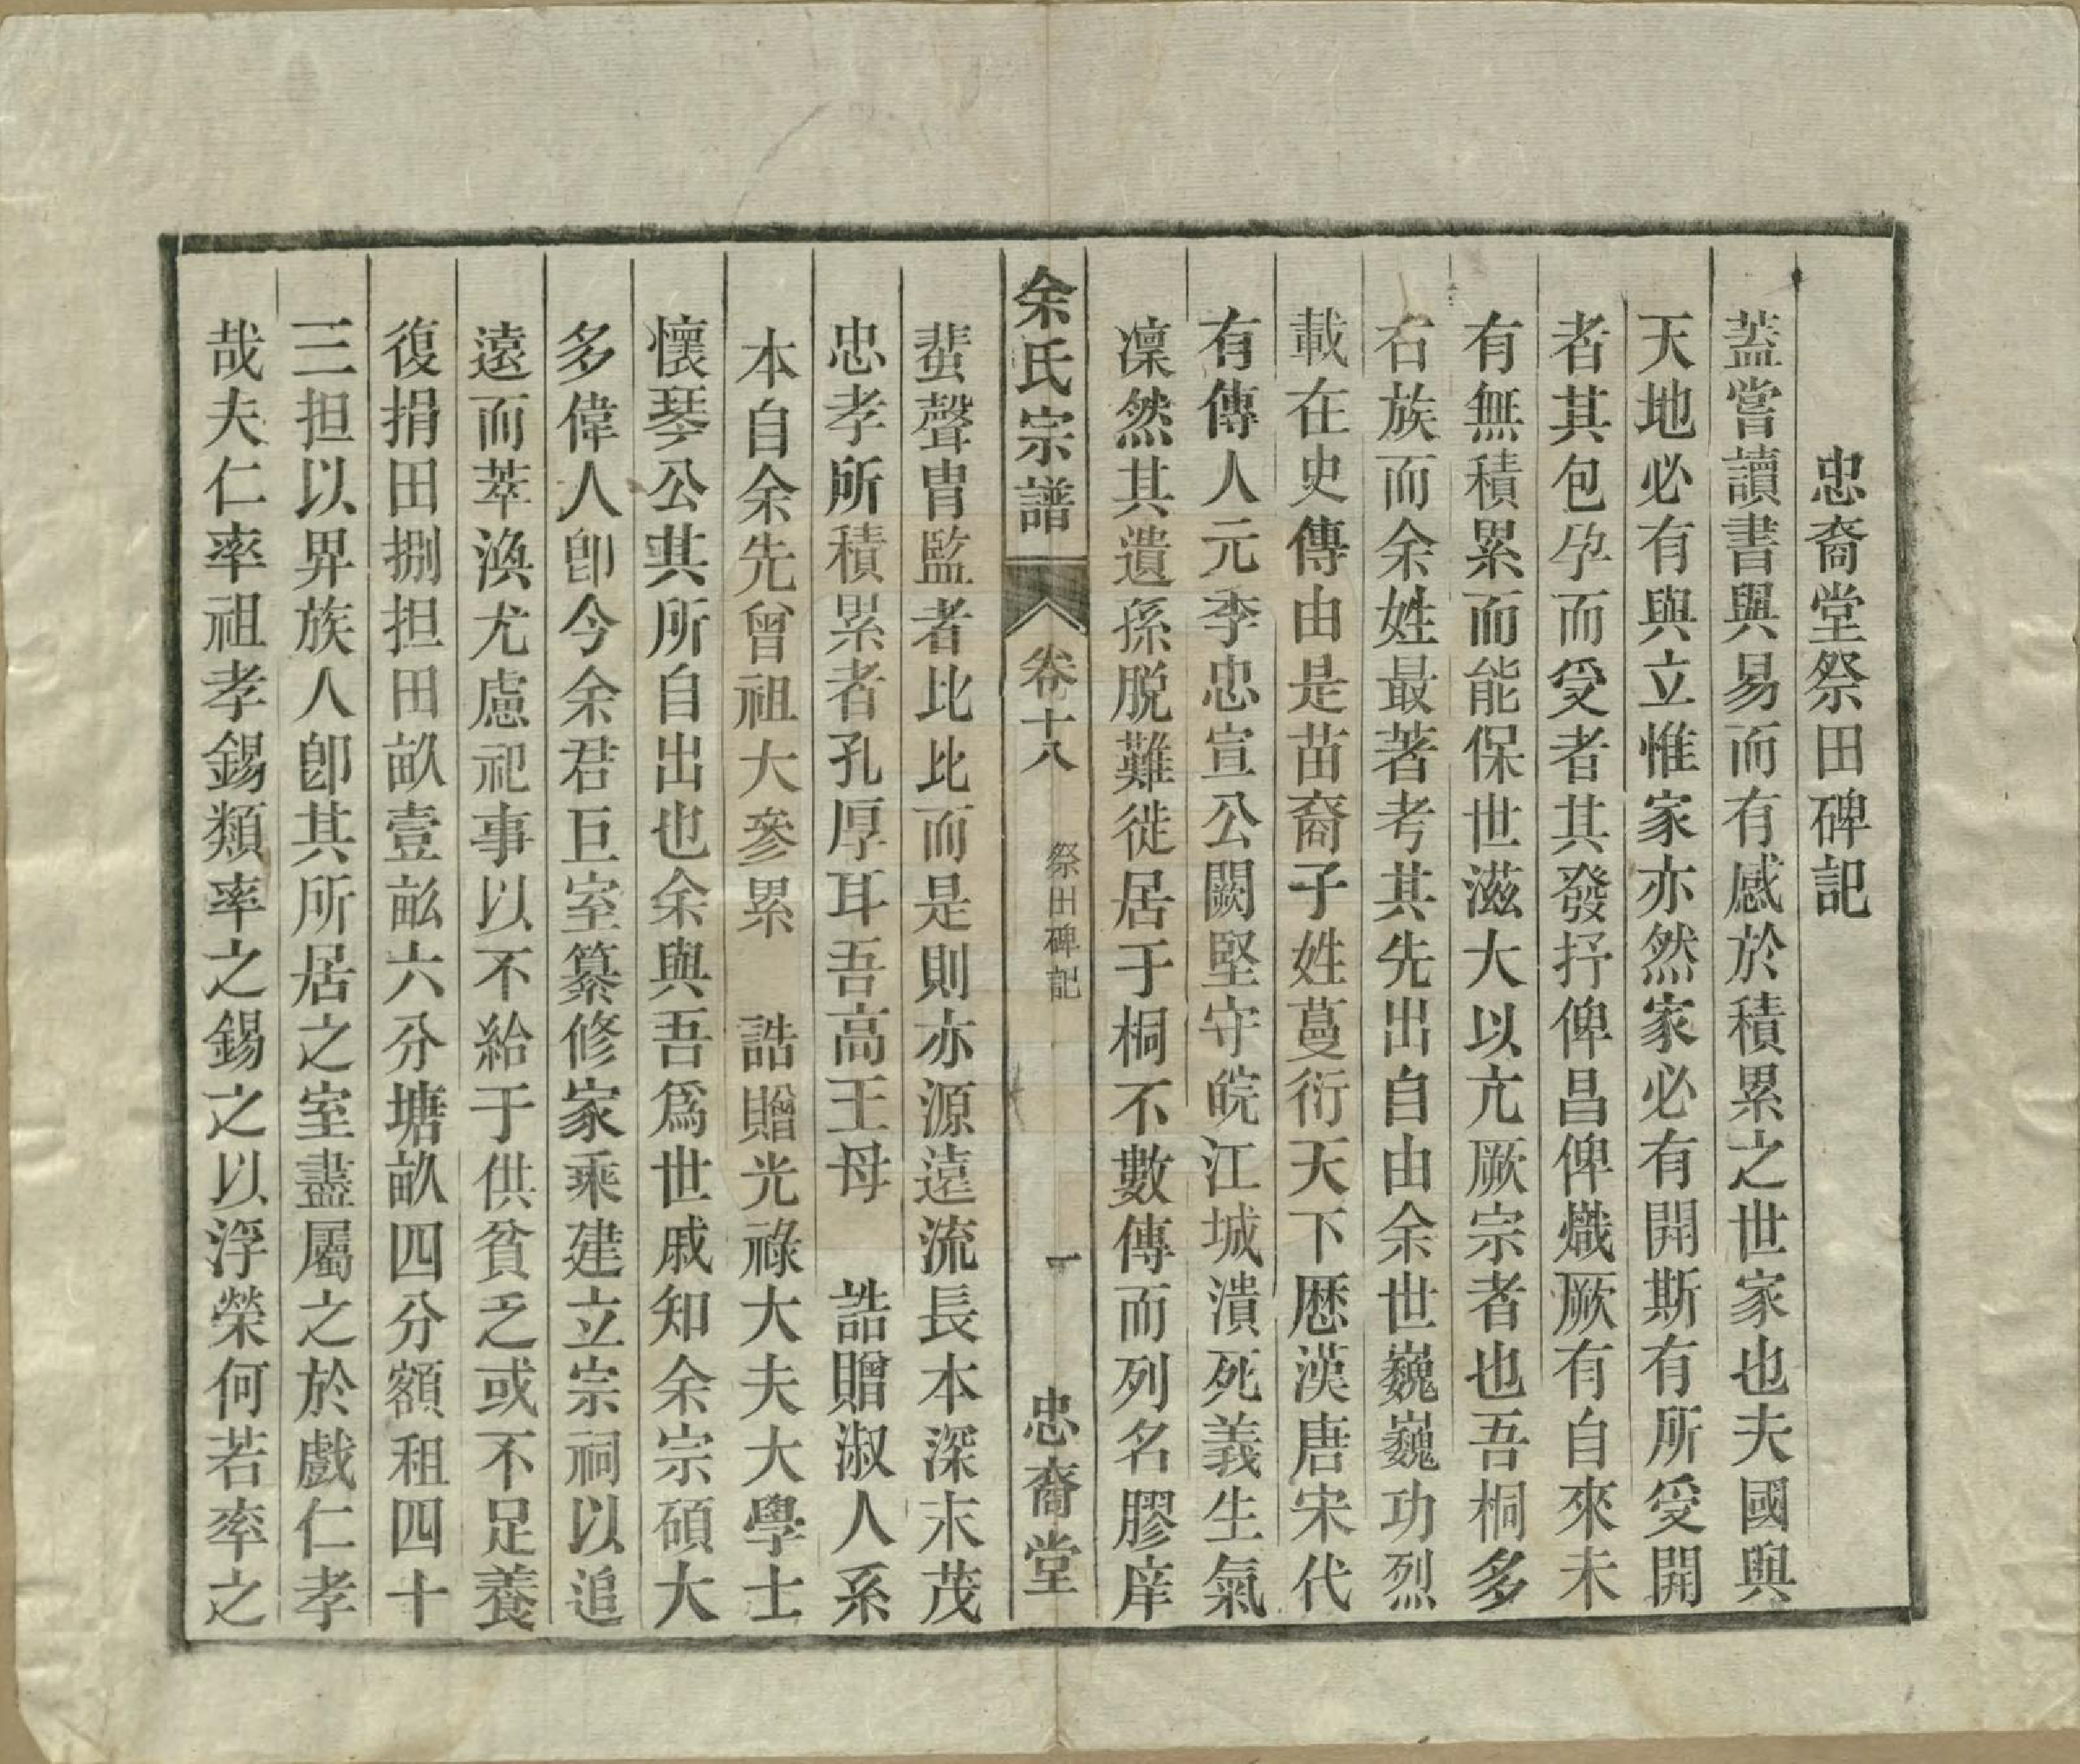 忠裔堂祭田碑記
蓋嘗讀書與易而有感於積累之世家也夫國與
天地必有與立惟家亦然家必有開斯有所受開
者其包孕而受者其發抒俾昌俾熾厥有自來未
有無積累而能保世滋大以亢厥宗者也吾桐多
右族而余姓最著考其先出自由余世巍巍功烈
載在史傳由是苗裔子姓蔓衍天下歷漢唐宋代
有傳人元季忠宣公闕堅守皖江城潰死義生氣
凜然其遺孫脫難徙居于桐不數傳而列名膠庠
余氏宗譜 卷十八 祭田碑記 一 忠裔堂
蜚聲胄監者比比而是則亦源遠流長本深末茂
忠孝所積累者孔厚耳吾高王母 誥贈淑人系
本自余先曾祖大參累 誥贈光祿大夫大學士
懷琴公其所自出也余與吾爲世戚知余宗碩大
多偉人卽今余君巨室纂修家乘建立宗祠以追
遠而萃渙尤慮祀事以不給于供貧乏或不足養
復捐田捌担田畝壹畝六分塘畝四分額租四十
三担以畀族人卽其所居之室盡屬之於戲仁孝
哉夫仁率祖孝錫類率之錫之以浮榮何若率之